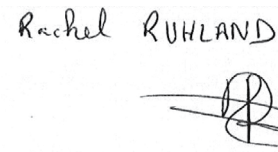 Rachel RUHLAND